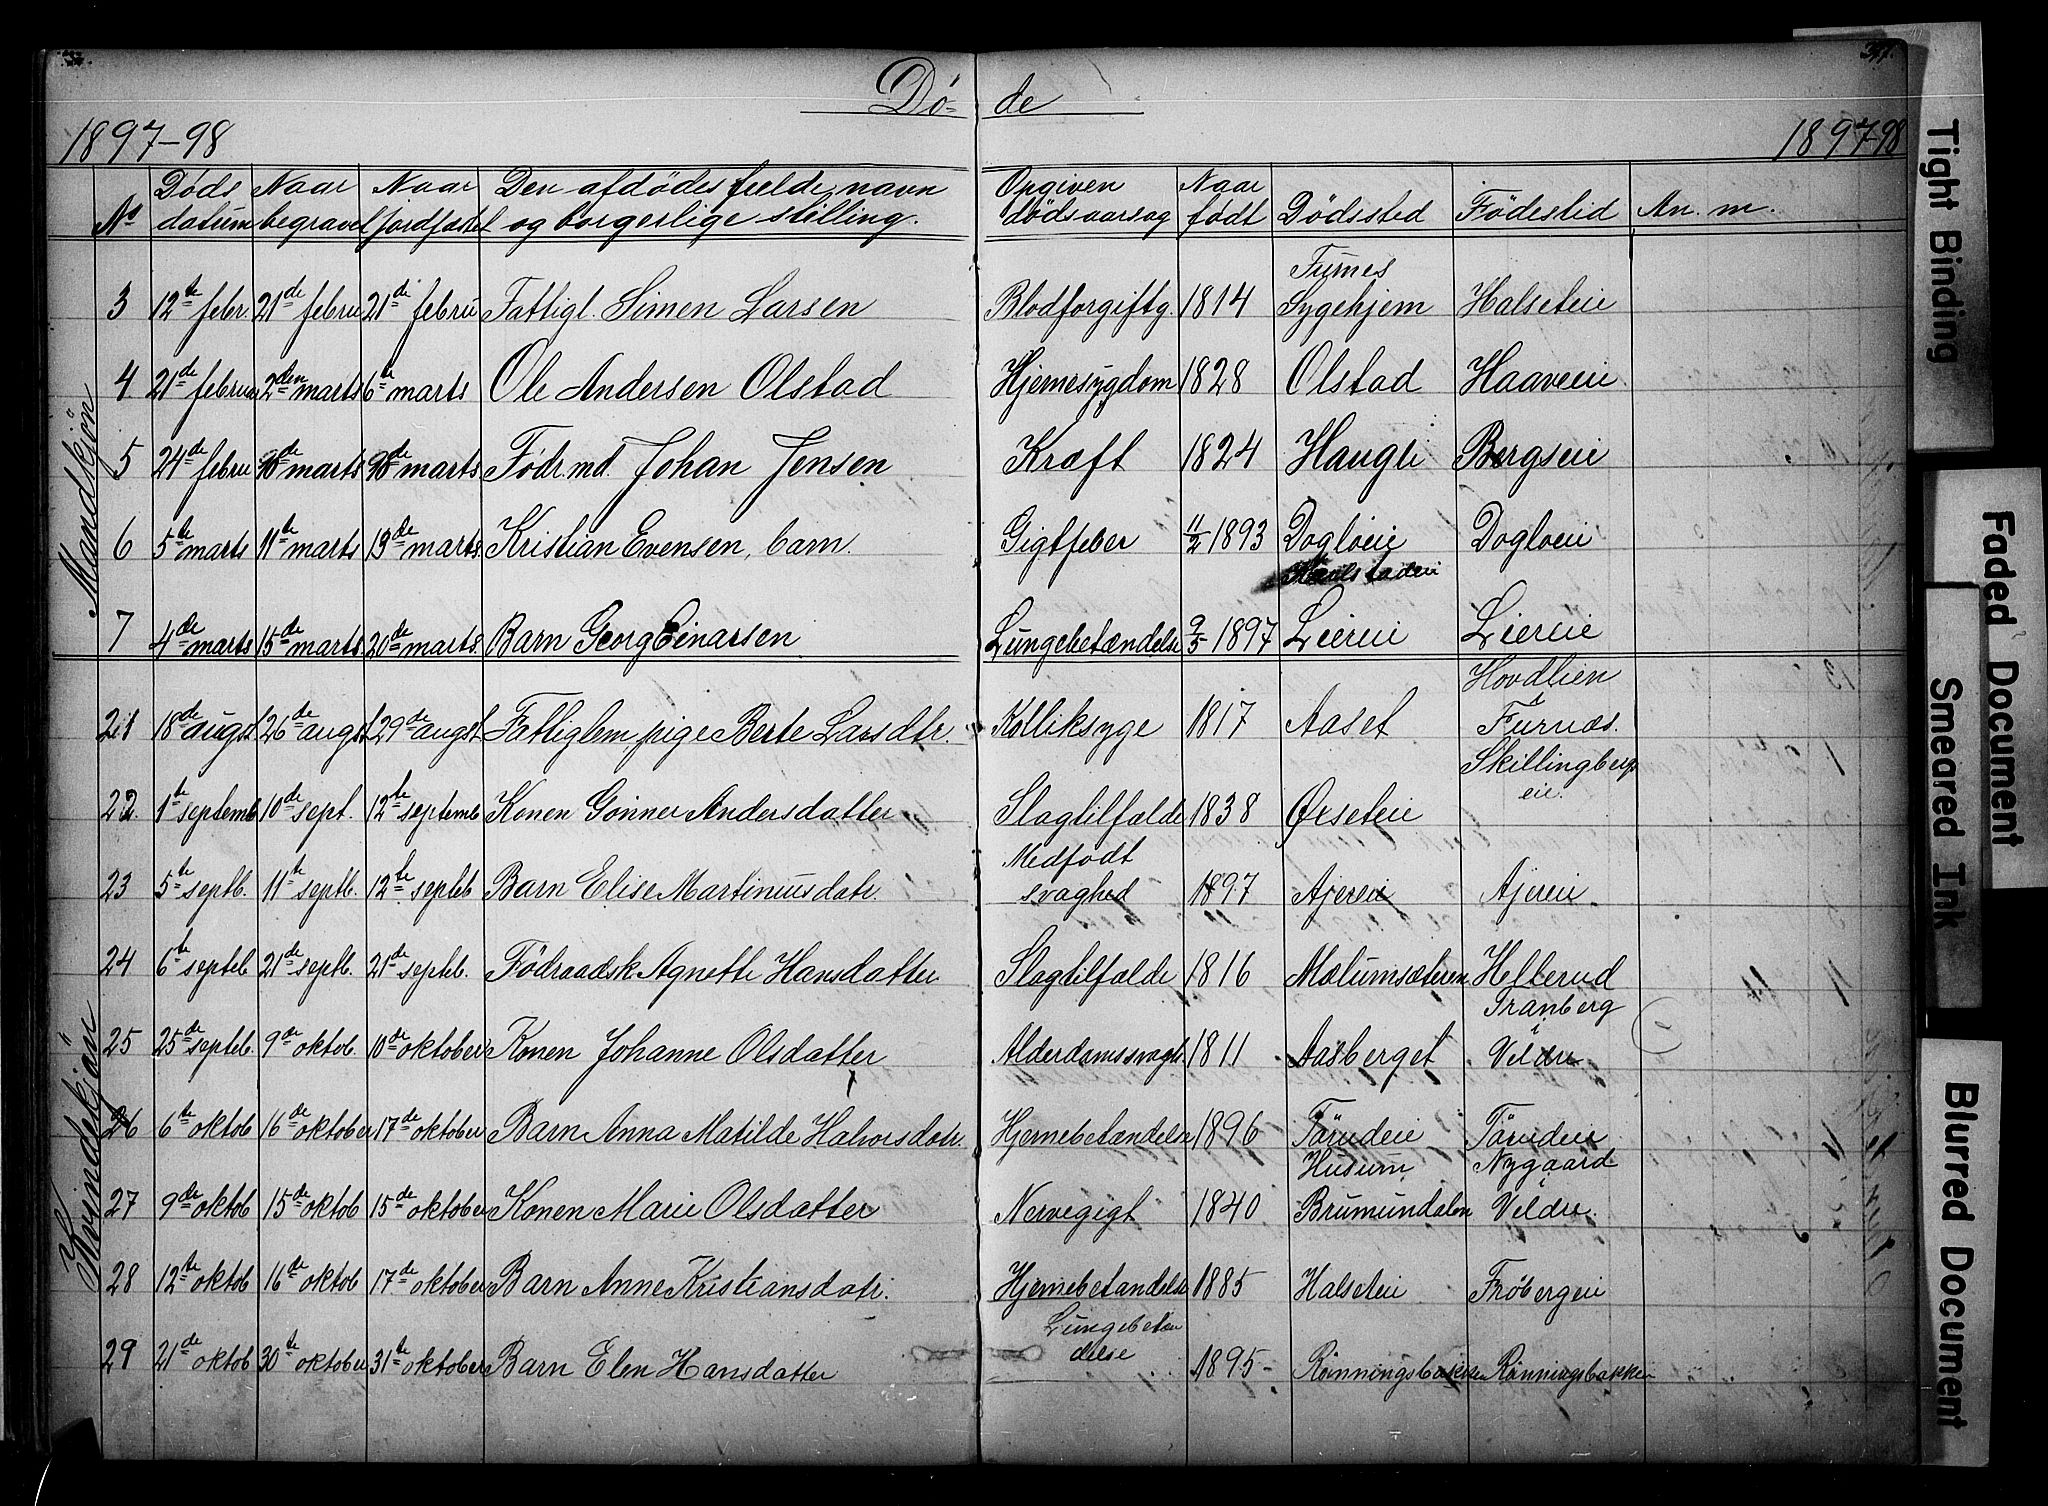 Dø- de
1897-98 1897-98
No Døds datum Naar begravet Naar jordfæstet Den afdødes fulde navn og borgerlige stilling. Opgiven dødsaarsag Naar født Dødssted Fødested An. m.
Mandkjön
3 12te febr. 21de febru 21de febru Fattigl. Simen Larsen Blodforgiftg. 1814 Furnes Sygehjem Halseteie
4 21de februar 2den marts 6te marts Ole Andersen Olstad Hjernesygdom 1828 Olstad Haaveeie
5 24de febru marts marts Födr.md. Johan Jensen Kræft 1824 Haugli Bergseie
6 5te marts 11te marts 13de marts. Kristian Evensen, barn. Gigtfeber 11/2 1893 Dogloeie Dogloeie
7 4de marts 15de marts 20de marts. Barn Georg Einarsen Lungebetændelse 9/5 1897 Liereie Liereie
Kvindekjön
21 18de augst 26de augst 29de augst. Fattiglem, pige Berte Larsdtr. Kolliksyge 1817 Aaset Hovdlien i Furnæs.
22. 1te septemb 10de sept. 12te septemb Konen Gönner Andersdatter Slagtilfælde 1838 Ørseteie Skillingberg eie.
23 5te septb. 11te septb. 12te septeb Barn Elise Martiniusdatr. Medfödt svaghed 1897 Ajereie Ajereie
24 6te septeb 21de septb. 21de septeb. Födraadsk Agnette Hansdatter Slagtilfælde 1816 Mælumsæteren Helterud
25 25de septeb 9de oktob. 10de oktober Konen Johanne Olsdatter Alderdomssvagh. 1811 Aasberget Granberg i Veldre
26 6te oktob 16de oktober 17de oktober Barn Anna Matilde Halvorsdatr. Hjernebetændelse 1896 Törudeie Törudeie
27 9de oktob 15de oktob 15de oktober Konen Marie Olsdatter Nervegigt 1840 Husum, Brumundalen Nygaard i Veldre.
28 12te oktob 16de oktob 17de oktober Barn Anne Kristiansdatr. Hjernebetændelse 1885 Halseteie Frøbergeie
29 21de oktob 30te oktober 31te oktober Barn Elen Hansdatter Lungebetæn delse 1895- Rönningsbakken Rönningsbakken
Tight Binding
Faded Document
Smeared Ink
Blurred Document